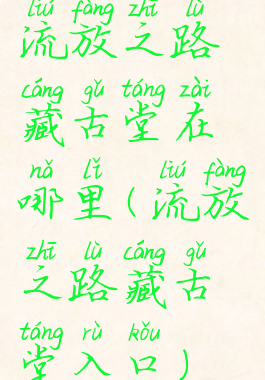 liú fàng zhī lù
流放之路
cáng gǔ táng zài
藏古堂在
nǎ lǐ liú fàng
哪里(流放
zhī lù cáng gǔ
之路藏古
táng rù kǒu
堂入口)